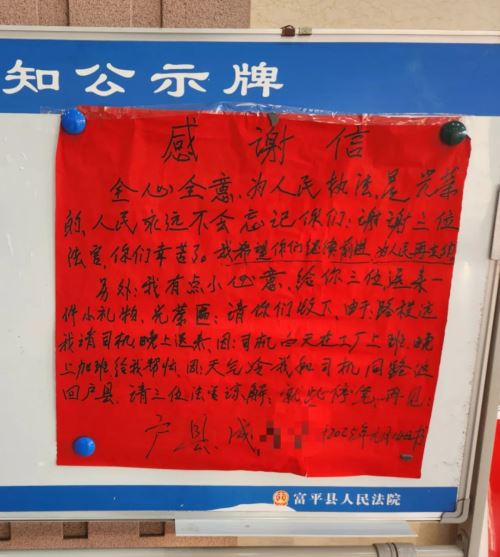 知公示牌
感谢信
全心全意,为人民执法,是光荣
的,人民永远不会忘记你们;谢谢三位
法官,你们辛苦了。我希望你们继续前进,为人民再立功
另外:我有点小心意,给你三位送来一
件小礼物,光荣匾;请你们收下,由于;路程远
我请司机晚上送来,因;司机白天在工厂上班,晚
上加班给我帮忙,因;天气冷我和司机同路返
回户县,请三位法官谅解;就此停笔,再见;
户县,成
富平县人民法院